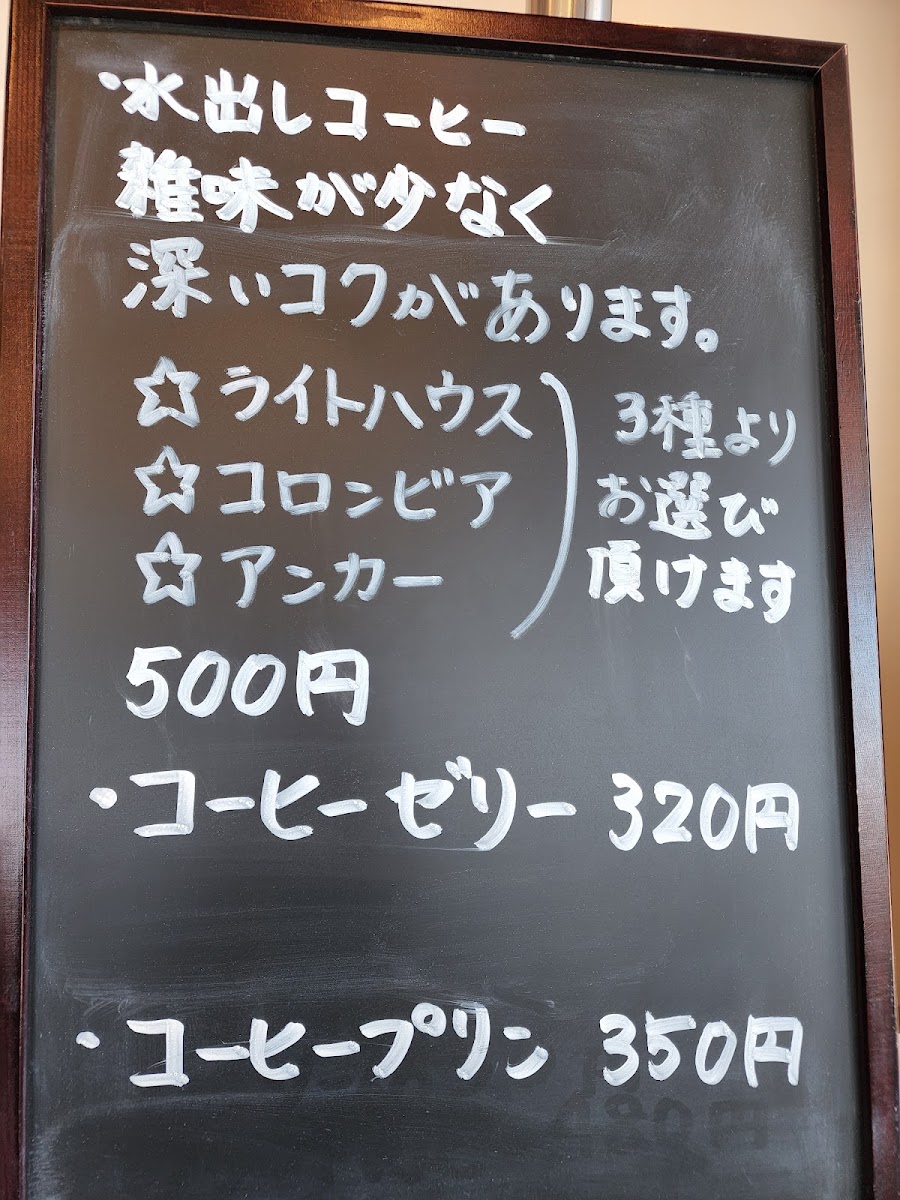 ・水出しコーヒー
雑味が少なく
深いコクがあります。
☆ライトハウス
☆コロンビア
☆アンカー
3種より
お選び
頂けます
500円
・コーヒーゼリー 320円
・コーヒープリン 350円